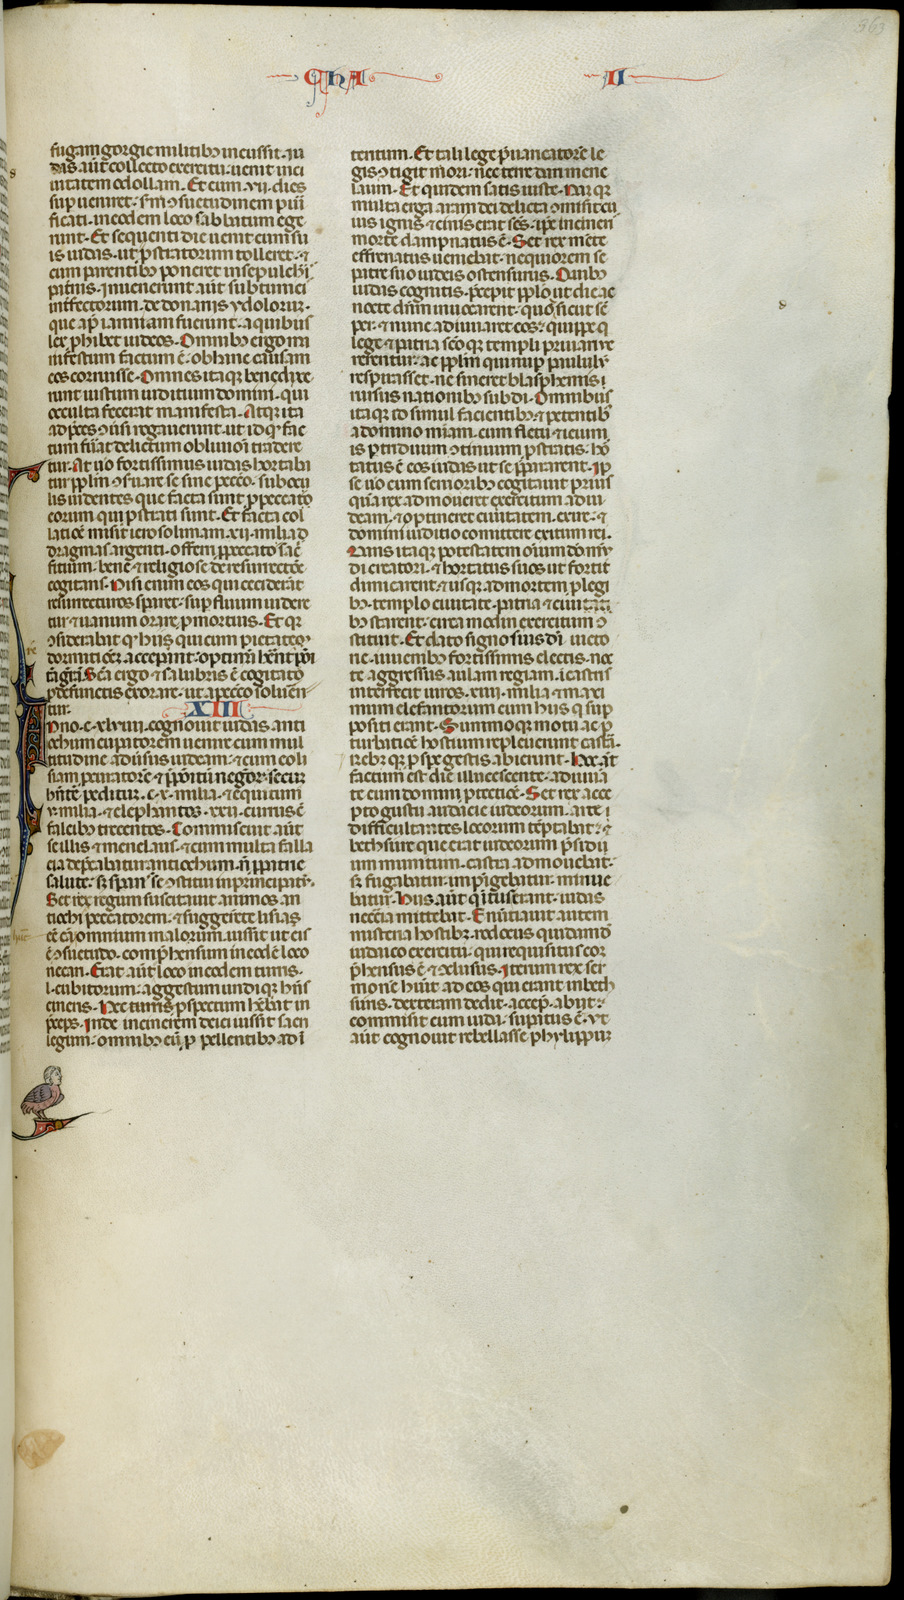 363
CHA
II
fugam gorgie militibꝫ incussit. iu
das aūt collecto exercitu: uenit in ci
uitatem odollam. Et cum .vii. dies
sup uenīret: scdm ꝯsuetudinem puri
ficati. in eodem loco sabbatum ege
runt. Et sequenti die uenit cum su
is iudas. ut ꝓstratorum tolleret: ⁊
cum parentibꝫ poneret in sepulchris
pat̄nis. inuenerunt aūt sub tunicis
int̄fectorum. de donariis ydolorum.
que ap̄ iamniam fuerunt. a quibus
lex ꝓhibet iudeos. Omnibꝫ ergo ma
nifestum factum ē. ob hanc causam
eos corruisse. Omnes itaqꝫ benedixe
runt iustum iuditium domini. qui
occulta fecerat manifesta. Atqꝫ ita
ad p̄ces ꝯu̇si rogauerunt. ut id qd̄ fac
tum fūat delictum obliuioni tradere
tur. At uo fortissimus iudas hortaba
tur ppłm ꝯs̄uare se sine peccō. sub ocu
lis uidentes que facta sunt ꝓ peccato
eorum qui ꝓstrati sunt. Et facta col
latiōe misit ierosolimam .xii. milia d
dragmas argenti. offerri ꝓ peccato sac̄
fitium. bene ⁊ religiose de resurrectōe
cogitans. Nisi enim eos qui ceciderāt
resurrecturos sꝑaret: suꝑfluum uidere
tur ⁊ uanum orare ꝓ mortuis. Et qꝫ
ꝯsiderabat qd̄ hiis qui cum pietate
dormitioēꝫ acceperant. optimā hr̄ent repōi
tā grām. Sc̄a ergo ⁊ salubris ē cogitatō
ꝓ defunctis exorare. ut a peccō soluan
tur.
XIII
Anno .c.xlviiii. cognouit iudas anti
ochum eupatorem uenire cum mul
titudine aduersus iudeam. ⁊ cum eo li
siam pcuratorē ⁊ p̄positū negōr. secum
hn̄te peditum .c.x. milia. ⁊ equitum
v. milia. ⁊ elephantos .xxii. currus cū
falcibꝫ trecentos. Commiscuit aūt
se illis ⁊ menelaus. ⁊ cum multa falla
cia deprecabatur antiochum. nō ꝓ patrie
salute. sꝫ sꝑans se ꝯstitui in principatū.
Set rex regum suscitauit animos an
tiochi in peccatorem. ⁊ suggerēte lisia
eē cām omnium malorum. iussit ut eis
ē ꝯsuetudo. comp̄hensum in eodē loco
necari. Erat aūt loco in eodem turris.
.l. cubitorum. aggestum undiqꝫ hn̄s
cineris. Nec turris ꝓspectum hēbat in
p̄ceps. Inde in cinerem deici iussit sacri
legum. omnibꝫ eū ꝓ pellentibꝫ ad in
teritum. Et tali lege p̄uaricatorē le
gis ꝯtigit mori. nec terre dari mene
laum. Et quidem satis iuste. Nam qꝫ
multa erga aram dei delicta ꝯmisit cu
ius ignis ⁊ cinis erat sc̄s. ip̄e in cineris
morte dampnatus ē. Set rex mēte
effrenatus ueniebat. nequiorem se
patre suo iudeis ostensurus. Quibꝫ
iudas cognitis. p̄cepit ppło ut die ac
nocte dn̄m inuocarent. quō sicut sē
per. ⁊ nunc adiuuaret eos: quippe q
lege ⁊ patria scōqꝫ templo priuari ue
rerentur. ac ppłm qui nup̄ paululum
respirasset. ne sineret blasphemis
rursus nationibꝫ subdi. Omnibus
itaqꝫ id simul facientibꝫ ⁊ petentibꝫ
a domino mīam. cum fletu ⁊ ieiuni
is ꝑ triduum ꝯtinuum ꝓstratis. hor
tatus ē eos iudas ut se p̄pararent. Ip
se uo cum senioribꝫ cogitauit prius
qā rex admoueret exercitum ad iu
deam. ⁊ optineret ciuitatem. exire. ⁊
domini iuditio comittere exitum rei.
Dans itaqꝫ potestatem oīum deo mū
di creatori. ⁊ hortatus suos ut fortit̄
dimicarent. ⁊ usqꝫ ad mortem ꝓ legi
bꝫ. templo. ciuitate. patria ⁊ ciuitati
bꝫ starent. circa modin exercitum ꝯ
stituit. Et dato signo suis dei uicto
rie. iuuenibꝫ fortissimis electis. noc
te aggressus aulam regiam. in castris
interfecit uiros .xiiii. milia. ⁊ maxi
mum elefantorum cum hiis q̇ sup
positi erant. Summoqꝫ motu ac ꝑ
turbatiōe hostium repleuerunt castra.
rebꝫqꝫ ꝓspe gestis abierunt. Hoc aūt
factum est die illucescente. adiuua
te eum domini ꝓtectiōe. Set rex acce
pto gustu audacie iudeorum. arte
difficultates locorum teptabat. ⁊
bethsure que erat iudeorum p̄sidi
um munitum. castra admouebat.
sꝫ fugabatur. impīgebatur. minue
batur. Hiis aūt q̇ intus erant. iudas
nccīa mittebat. Enūtiauit autem
misteria hostibꝫ rodocus quidam de
iudaico exercitu. qui requisitus com
p̄hensus ē ⁊ ꝯclusus. Iterum rex ser
mone hūit ad eos qui erant in beth
suris. dexteram dedit. accepit. abiit.
commisit cum iuda. supatus ē. Vt
aūt cognouit rebellasse phylippum